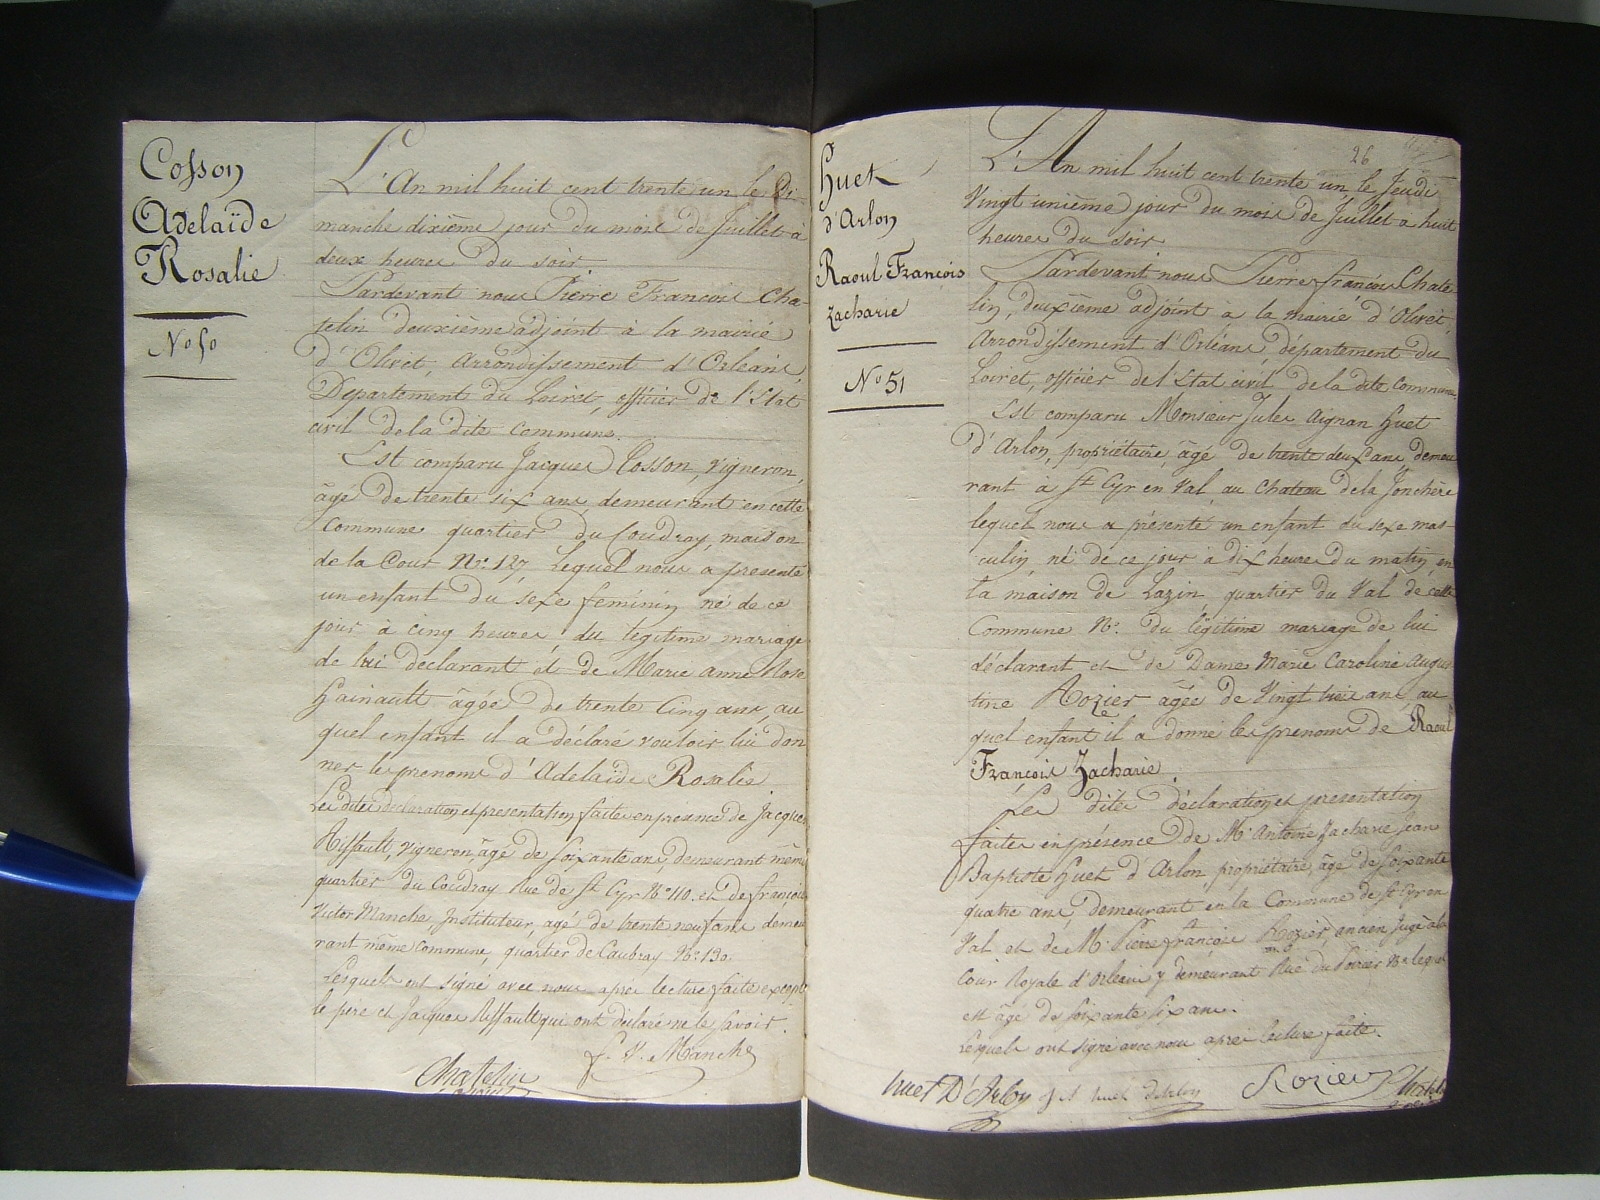 Cosson
Adelaïde
Rosalie
No 50
L'An mil huit cent trente un le Di-
manche dixième jour du mois de Juillet à
deux heures du soir
Pardevant nous Pierre François Cha-
telin deuxième adjoint à la mairie
d'Olivet, arrondissement d'Orléans,
Département du Loiret, officier de l'Etat
civil de la dite commune.
Est comparu Jacques Cosson, vigneron,
âgé de trente six ans demeurant en cette
Commune quartier du Coudray, maison
de la Cour No. 127, Lequel nous a présenté
un enfant du sexe féminin né de ce
jour à cinq heures du légitime mariage
de lui déclarant et de Marie Anne Rose
Hainault âgée de trente Cinq ans, au
quel enfant il a déclaré vouloir lui don
ner les prenoms d'Adelaïde Rosalie
Les dites déclaration et presentation faites en présence de Jacques
Riffault, vigneron, âgé de soixante ans, demeurant même
quartier du Coudray Rue de St Cyr No 110. et de françois
Victor Manche, Instituteur, agé de trente neuf ans demeu
rant même commune, quartier de Caubray No. 130.
Lesquels ont signé avec nous aprés lecture faite excepté
le père et Jacques Riffault qui ont déclaré ne le savoir.
f. V. Manche
Chatelin
26
Huet
d'Arlon
Raoul François
Zacharie
No 51
L'An mil huit cent trente un, le Jeudi
Vingt unième jour du mois de Juillet a huit
heures du soir
Pardevant nous Pierre françois Chate-
lin, deuxième adjoint à la mairie d'Olivet,
Arrondissement d'Orléans, département du
Loiret, officier de l'Etat civil de la dite Commune
Est comparu Monsieur Jules Aignan Huet
d'Arlon, propriétaire, âgé de trente deux ans demeu
rant à St Cyr en Val, au Chateau de la Jonchère
lequel nous a présenté un enfant du sexe mas
culin, né de ce jour à dix heures du matin, en
la maison de Lazin quartier du Val de cette
Commune No. du légitime mariage de lui
déclarant et de Dame Marie Caroline Augus
tine Rozier âgée de Vingt ans, au
quel enfant il a donné les prenoms de Raoul
François Zacharie.
Les dites déclaration et presentation
faites en présence de Mr Antoine Zacharie Jean
Baptiste Huet d'Arlon propriétaire, âgé de soixante
quatre ans, demeurant en la Commune de St Cyr en
Val et de Mr Pierre françois Rozier, ancien Juge à la
Cour Royale d'Orléans y demeurant Rue du Poirier No lequel
est âgé de soixante six ans.
Lesquels ont signé avec nous aprés lecture faite.
huet D'Arlon J A huet d'Arlon Rozier Chatelin